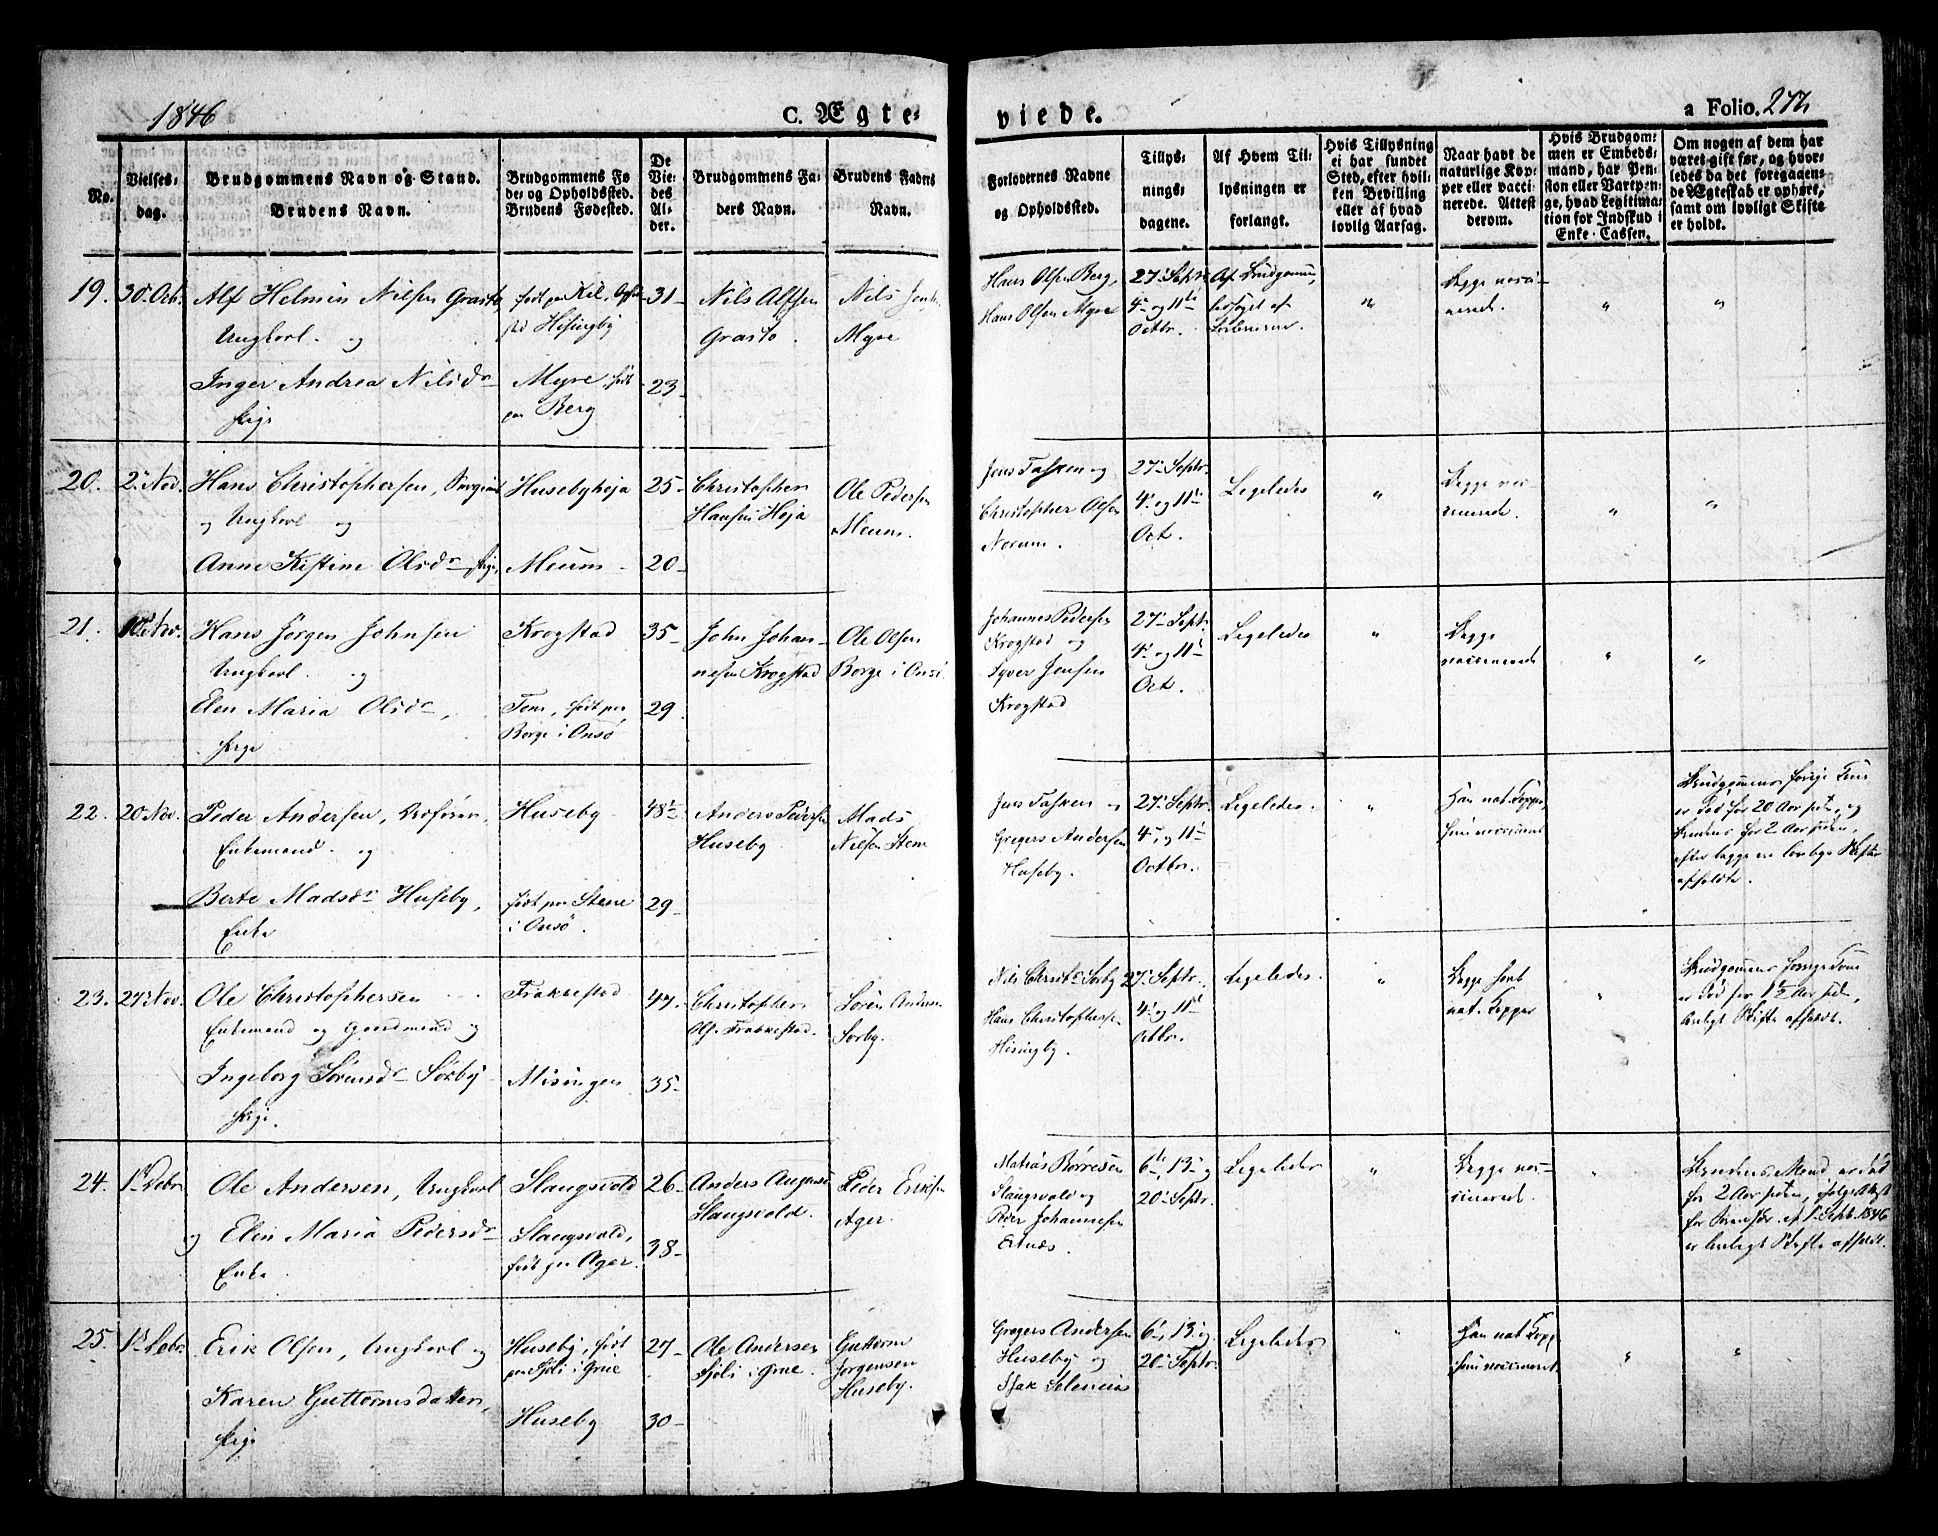 1846
C. Ægte-
viede.
a Folio. 277.
No.
Vielses-
dag.
Brudgommens Navn og Stand.
Brudens Navn.
Brudgommens Fø-
de- og Opholdssted.
Brudens Fødested.
De
Vie-
des
Al-
der.
Brudgommens Fa-
ders Navn.
Brudens Faders
Navn.
Forlovernes Navne
og Opholdssted.
Tillys-
nings-
dagene.
Af Hvem Til-
lysningen er
forlangt.
Hvis Tillysning
ei har fundet
Sted, efter hvil-
ken Bevilling
eller af hvad
lovlig Aarsag.
Naar havt de
naturlige Kop-
per eller vacci-
nerede. Attest
derom.
Hvis Brudgom-
men er Embeds-
mand, har Pen-
sion eller Vartpen-
ge, hvad Legitima-
tion for Indskud i
Enke-Cassen.
Om nogen af dem har
været gift før, og hvor-
ledes da det foregaaen-
de Ægteskab er ophørt,
samt om lovligt Skifte
er holdt.
19. 30 Oct. Alf Helmin Nilsen Grasto,
Ungkarl og
Inger Andrea Nilsdr
Pige
født paa Kil,
Hisingby
Myre, født
paa Berg
31
23
Nils Alfsen
Grasto.
Nils
Myre
Hans Olsen Berg,
Hans Olsen Myre
27 Septr
4 og 11te
Octbr.
Af Brudgommen,
Forloverne.
"
Begge vacci-
nerede.
"
"
20. 2 Nov. Hans Christophersen,
og Ungkarl og
Anne Kistine Olsdr Pige,
Husebyhøja
Meum
25
20
Christopher
Hansen Høja
Ole Pedersen
Meum.
Jens Tasken og
Christopher Olsen
Norum.
27 Septr.
4 og 11
Oct.
Ligeledes
"
Begge vac-
cinerede.
"
"
21. Nov. Hans Jørgen Johnsen
Ungkarl og
Elen Maria Olsdr,
Pige
Krogstad
Tom, født paa
Borge i Onsø
35
29
John Johan-
nesen Krogstad
Ole Olsen
Borge i Onsø
Johannes Pedersen
Krogstad og
Syver Jensen
Krogstad
27 Septr
4 og 11
Oct.
Ligeledes
"
Begge
vaccinerede
"
"
22. 20 Nov. Peder Andersen,
Enkemand og
Berte Madsdr Huseby,
Enke
Huseby
født paa Stene
i Onsø
48½
29
Anders Pedersen
Huseby
Mads
Nilsen Stene
Jens Tasken og
Gregers Andersen
Huseby.
27 Septr.
4 og 11
Octbr.
Ligeledes
"
Han nat. Kopper,
hun vaccineret
Brudgommens forrige Kone
er død for 20 Aar siden, og
Brudens for 2 Aar siden,
efter begge ere lovlige Skifter
afholdte.
23. 27 Nov. Ole Christophersen
Enkemand og Gaardmand og
Ingeborg Sørensdr Sørby
Pige.
Frakkestad
Misingen
47
35
Christopher
Ols. Frakkestad.
Søren Andersen
Sørby.
Nils Christs Sørby
Hans Christophersen
Hisingby.
27 Septr.
4 og 11
Octbr.
Ligeledes.
"
Begge havt
nat. Kopper
"
Brudgommens forrige Kone
er død for 1½ Aar siden,
lovligt Skifte afholdt.
24. 1 Decbr Ole Andersen, Ungkarl
og Elen Maria Pedersdr
Enke
Slangsvold
Slangsvold,
født paa Ager.
26
38
Anders Augensen
Slangsvold.
Peder Eriksen
Ager.
Matias Børresen
Slangsvold og
Peder Johannesen
6te, 13 og
20 Septr.
Ligeledes
"
Begge vac-
cinerede.
Brudens Mand er død
for 2 Aar siden, ifølge Attest
1 Septbr. 1846
er lovligt Skifte afholdt.
25. 1 Decbr Erik Olsen, Ungkarl og
Karen Guttormsdatter,
Pige
Huseby, født
paa Sjoli i Grue
Huseby
27
30
Ole Andersen
Sjoli i Grue.
Guttorm
Jørgensen
Huseby.
Gregers Andersen
Huseby og
Isak
6, 13 og
20 Septr.
Ligeledes
"
Han nat. Kopp.
hun vaccineret.
"
"